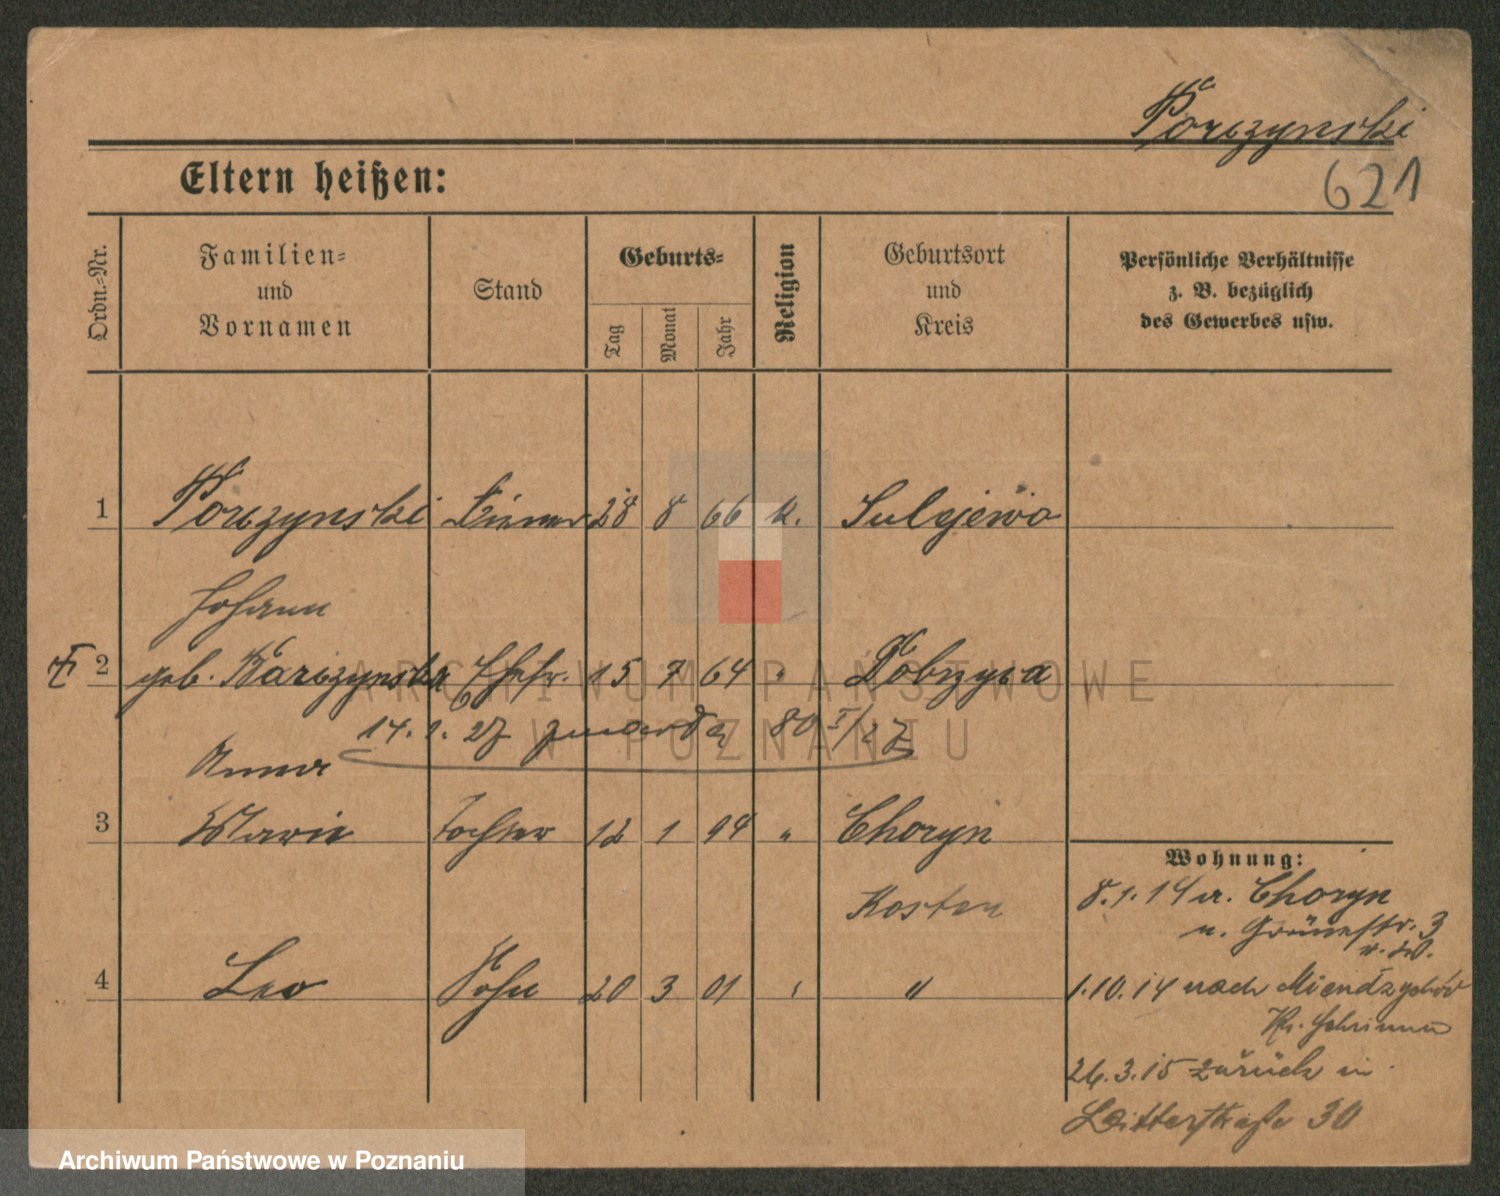 Porczynski
621
Eltern heißen:
Ordn.-Nr.
Familien- und Vornamen
Stand
Geburts-
Tag
Monat
Jahr
Religion
Geburtsort und Kreis
Persönliche Verhältnisse z. B. bezüglich des Gewerbes usw.
1 Porczynski Diener 28 8 66 k. Sulejewo
Johann
2 geb. Karczynska Ehefr. 15 7 64 " Dobczyca
14. 1. 27 zmarła 80 I/27
Anna
3 Marie Tochter 12 1 94 " Choryn
Kosten
4 Leo Sohn 20 3 01 " "
Wohnung:
8.1.14 a. Choryn
n. Grünestr. 3
1.10.14 nach Miendzychód
Kr. Schrimm
26.3.15 zurück in
Ritterstraße 30
ARCHIWUM PAŃSTWOWE
W POZNANIU
Archiwum Państwowe w Poznaniu